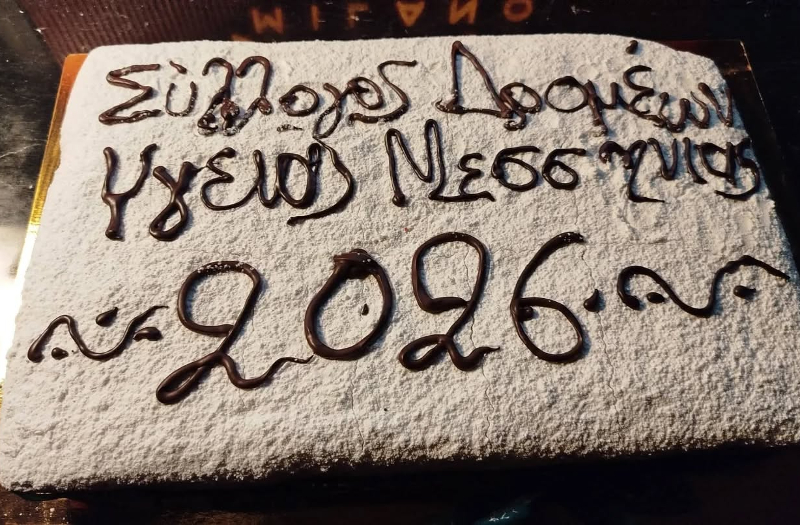 MILANO
Σύλλογος Δρομέων
Υγείας Μεσσηνίας
2026